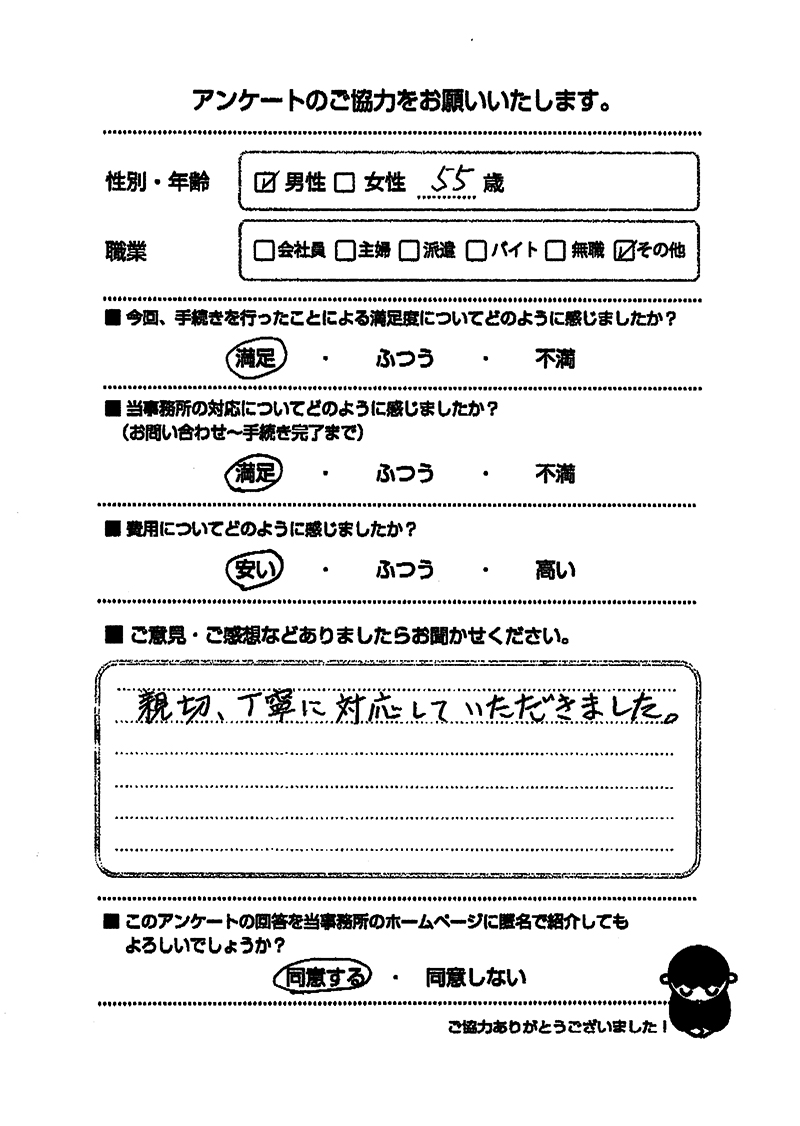 アンケートのご協力をお願いいたします。
性別・年齢 ☑男性 □女性 55歳
職業 □会社員 □主婦 □派遣 □バイト □無職 ☑その他
■ 今回、手続きを行ったことによる満足度についてどのように感じましたか?
満足 ・ ふつう ・ 不満
■ 当事務所の対応についてどのように感じましたか?
(お問い合わせ〜手続き完了まで)
満足 ・ ふつう ・ 不満
■ 費用についてどのように感じましたか?
安い ・ ふつう ・ 高い
■ ご意見・ご感想などありましたらお聞かせください。
親切、丁寧に対応していただきました。
■ このアンケートの回答を当事務所のホームページに匿名で紹介しても
よろしいでしょうか?
同意する ・ 同意しない
ご協力ありがとうございました!